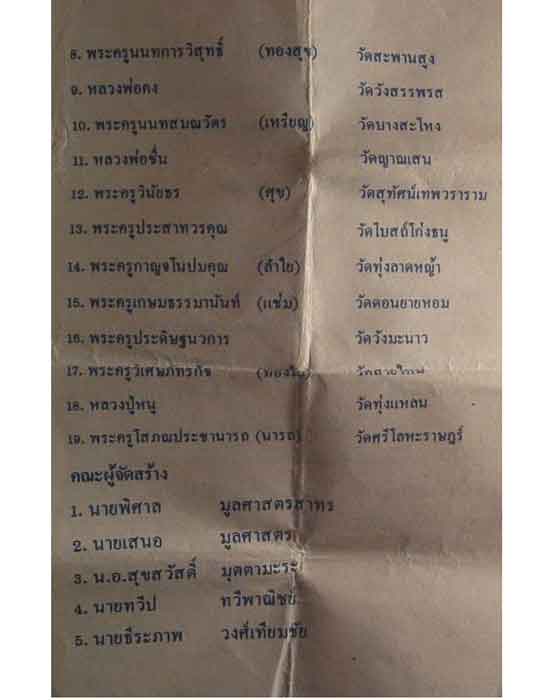 8. พระครูนนทการวิสุทธิ์ (ทองสุข) วัดสะพานสูง
9. หลวงพ่อคง วัดวังสรรพรส
10. พระครูนนทสมณวัตร (เหรียญ) วัดบางสะโหง
11. หลวงพ่อชื่น วัดญาณเสน
12. พระครูวินัยธร (ศุข) วัดสุทัศน์เทพวราราม
13. พระครูประสาทวรคุณ วัดโบสถ์โก่งธนู
14. พระครูกาญจโนปมคุณ (ลำใย) วัดทุ่งลาดหญ้า
15. พระครูเกษมธรรมานันท์ (แช่ม) วัดดอนยายหอม
16. พระครูประดิษฐนวการ วัดวังมะนาว
17. พระครูวิเศษภัทรกิจ
18. หลวงปู่หนู วัดทุ่งแหลน
19. พระครูโสภณประชานารถ (นารถ) วัดศรีโลหะราษฎร์
คณะผู้จัดสร้าง
1. นายพิศาล มูลศาสตรสาทร
2. นายเสนอ มูลศาสตร
3. น.อ.สุขสวัสดิ์ มุตตามะระ
4. นายทวีป ทวีพาณิชย์
5. นายธีระภาพ วงศ์เทียมชัย